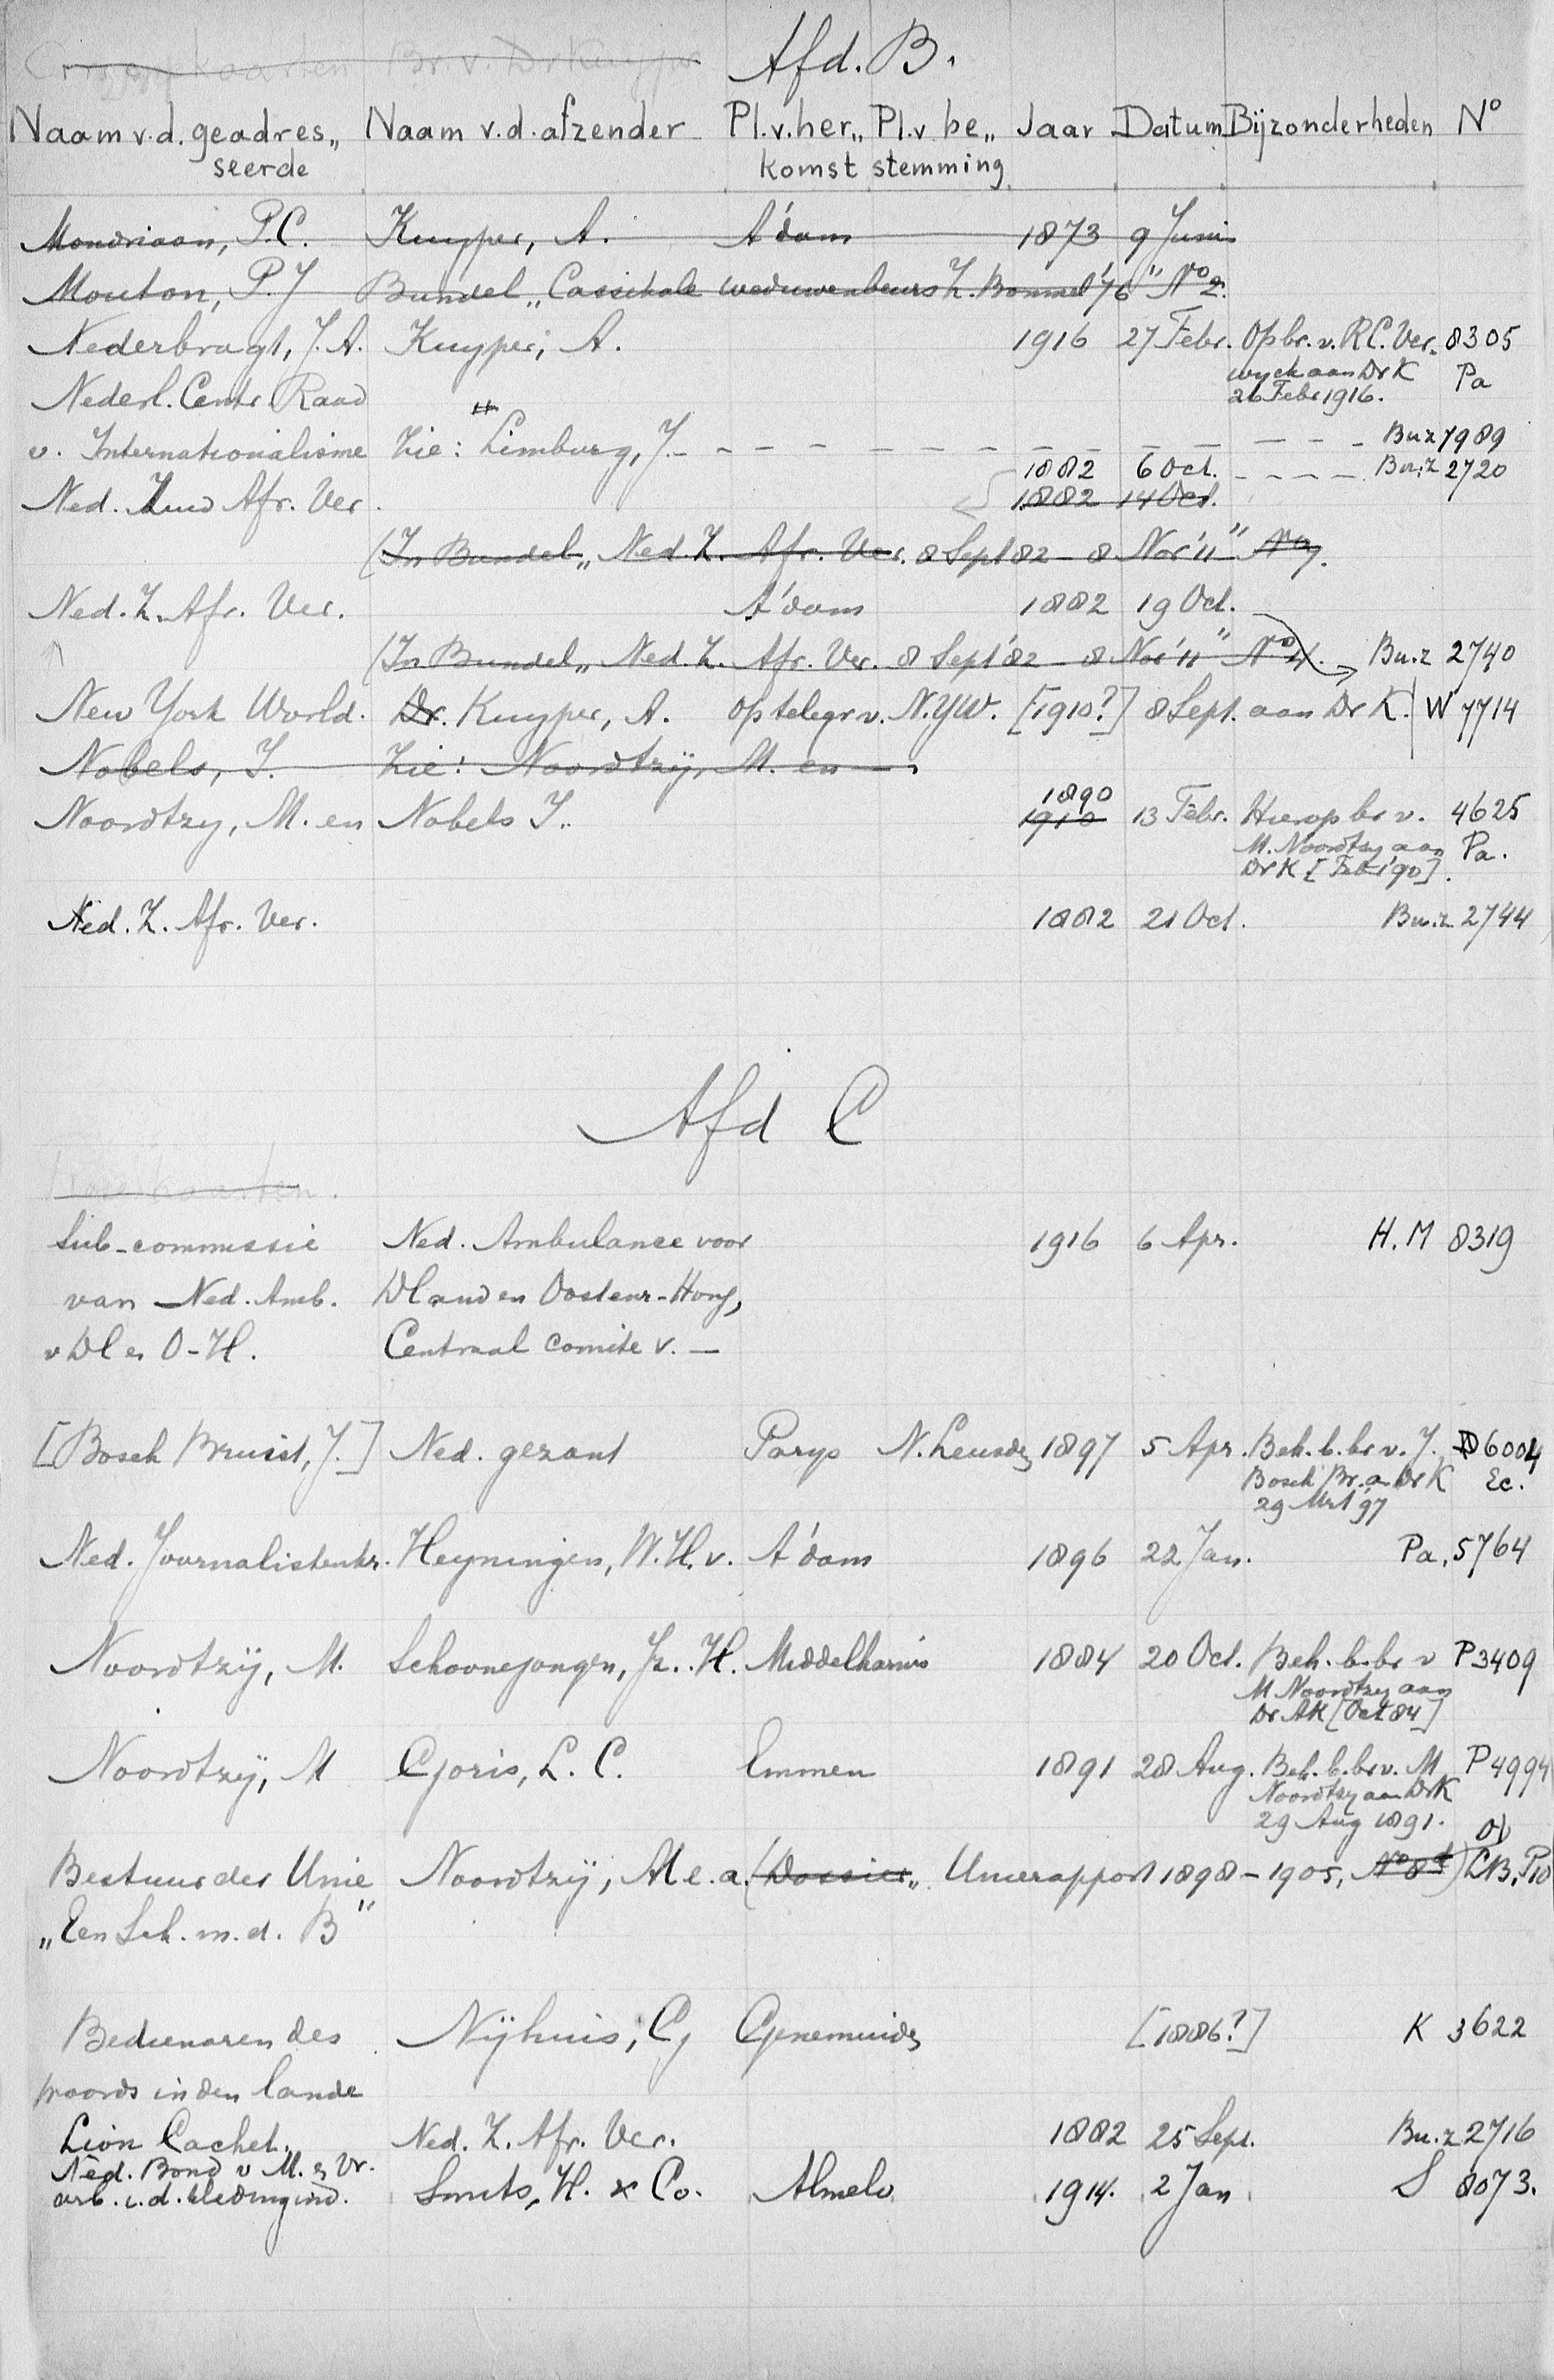 Afd. B.
Naam v.d. geadres„ Naam v.d. afzender Pl.v.her„ Pl.v be„ Jaar Datum Bijzonderheden No
seerde komst stemming
Mondriaan, P.C. Kuyper, A. A'dam 1873 9 Juni
Mouton, P.J Bundel „Cassitale weduwenbeurs Z. Bommel '76" No 2.
Nederbragt, J.A. Kuyper, A. 1916 27 Febr. Op br. v. R.C. Ver„ 8305
wyck aan Dr K Pa
Nederl. Centr. Raad 26 Febr 1916.
v. Internationalisme Zie: Limburg, J. – – – – – – – – – – – – Bu.z 7989
1882 6 Oct. – – – – Bu.z 2720
Ned. Zuid Afr. Ver. 1882 14 Oct.
(In Bundel „Ned. Z. Afr. Ver. 8 Sept 82 – 8 Nov '11" No 7.
Ned. Z. Afr. Ver. A'dam 1882 19 Oct.
(In Bundel „Ned. Z. Afr. Ver. 8 Sept '82 – 8 Nov '11" No 4. Bu.z 2740
New York World. Dr. Kuyper, A. op telegr v. N.YW. [1910?] 8 Sept. aan Dr K. W 7714
Nobels, J. Zie: Noordtzij, M. en –
1890
Noordtzy, M. en Nobels J. 1910 13 Febr. Hierop br v. 4625
M. Noordtzy aan Pa.
Dr K [Febr '90].
Ned. Z. Afr. Ver. 1882 21 Oct. Bu.z 2744
Afd C
Sub-commissie Ned. Ambulance voor 1916 6 Apr. H.M 8319
van Ned. Amb. Dl and en Oostenr-Hong,
v Dl en O-H. Centraal Comite v. –
[Bosch Bruist, J.] Ned. gezant Parys N. Leusden 1897 5 Apr. Beh. b. br v. J. 6004
Bosch Br. a Dr K Ec.
29 Mrt '97
Ned. Journalistenkr. Heyningen, W.H. v. A'dam 1896 22 Jan. Pa. 5764
Noordtzij, M. Schoonejongen, Jz. H. Middelharnis 1884 20 Oct. Beh. b. br v P 3409
M Noordtzy aan
Dr AK [Oct 84]
Noordtzij, M Goris, L. C. Emmen 1891 28 Aug. Beh. b. br v. M P 4994
Noordtzy aan Dr K
29 Aug 1891.
Bestuur der Unie Noordtzij, M e. a. (Dossier „ Unierapport 1898 – 1905, No 8) LB, P10
„Een Sch. m. d. B"
Bedienaren des Nijhuis, G Genemuiden [1886?] K 3622
woords in den lande
Lion Cachet. Ned. Z. Afr. Ver. 1882 25 Sept. Bu.z 2716
Ned. Bond v M. en Vr.
arb. i. d. kledingind. Smits, H. & Co. Almelo 1914. 2 Jan S 8073.